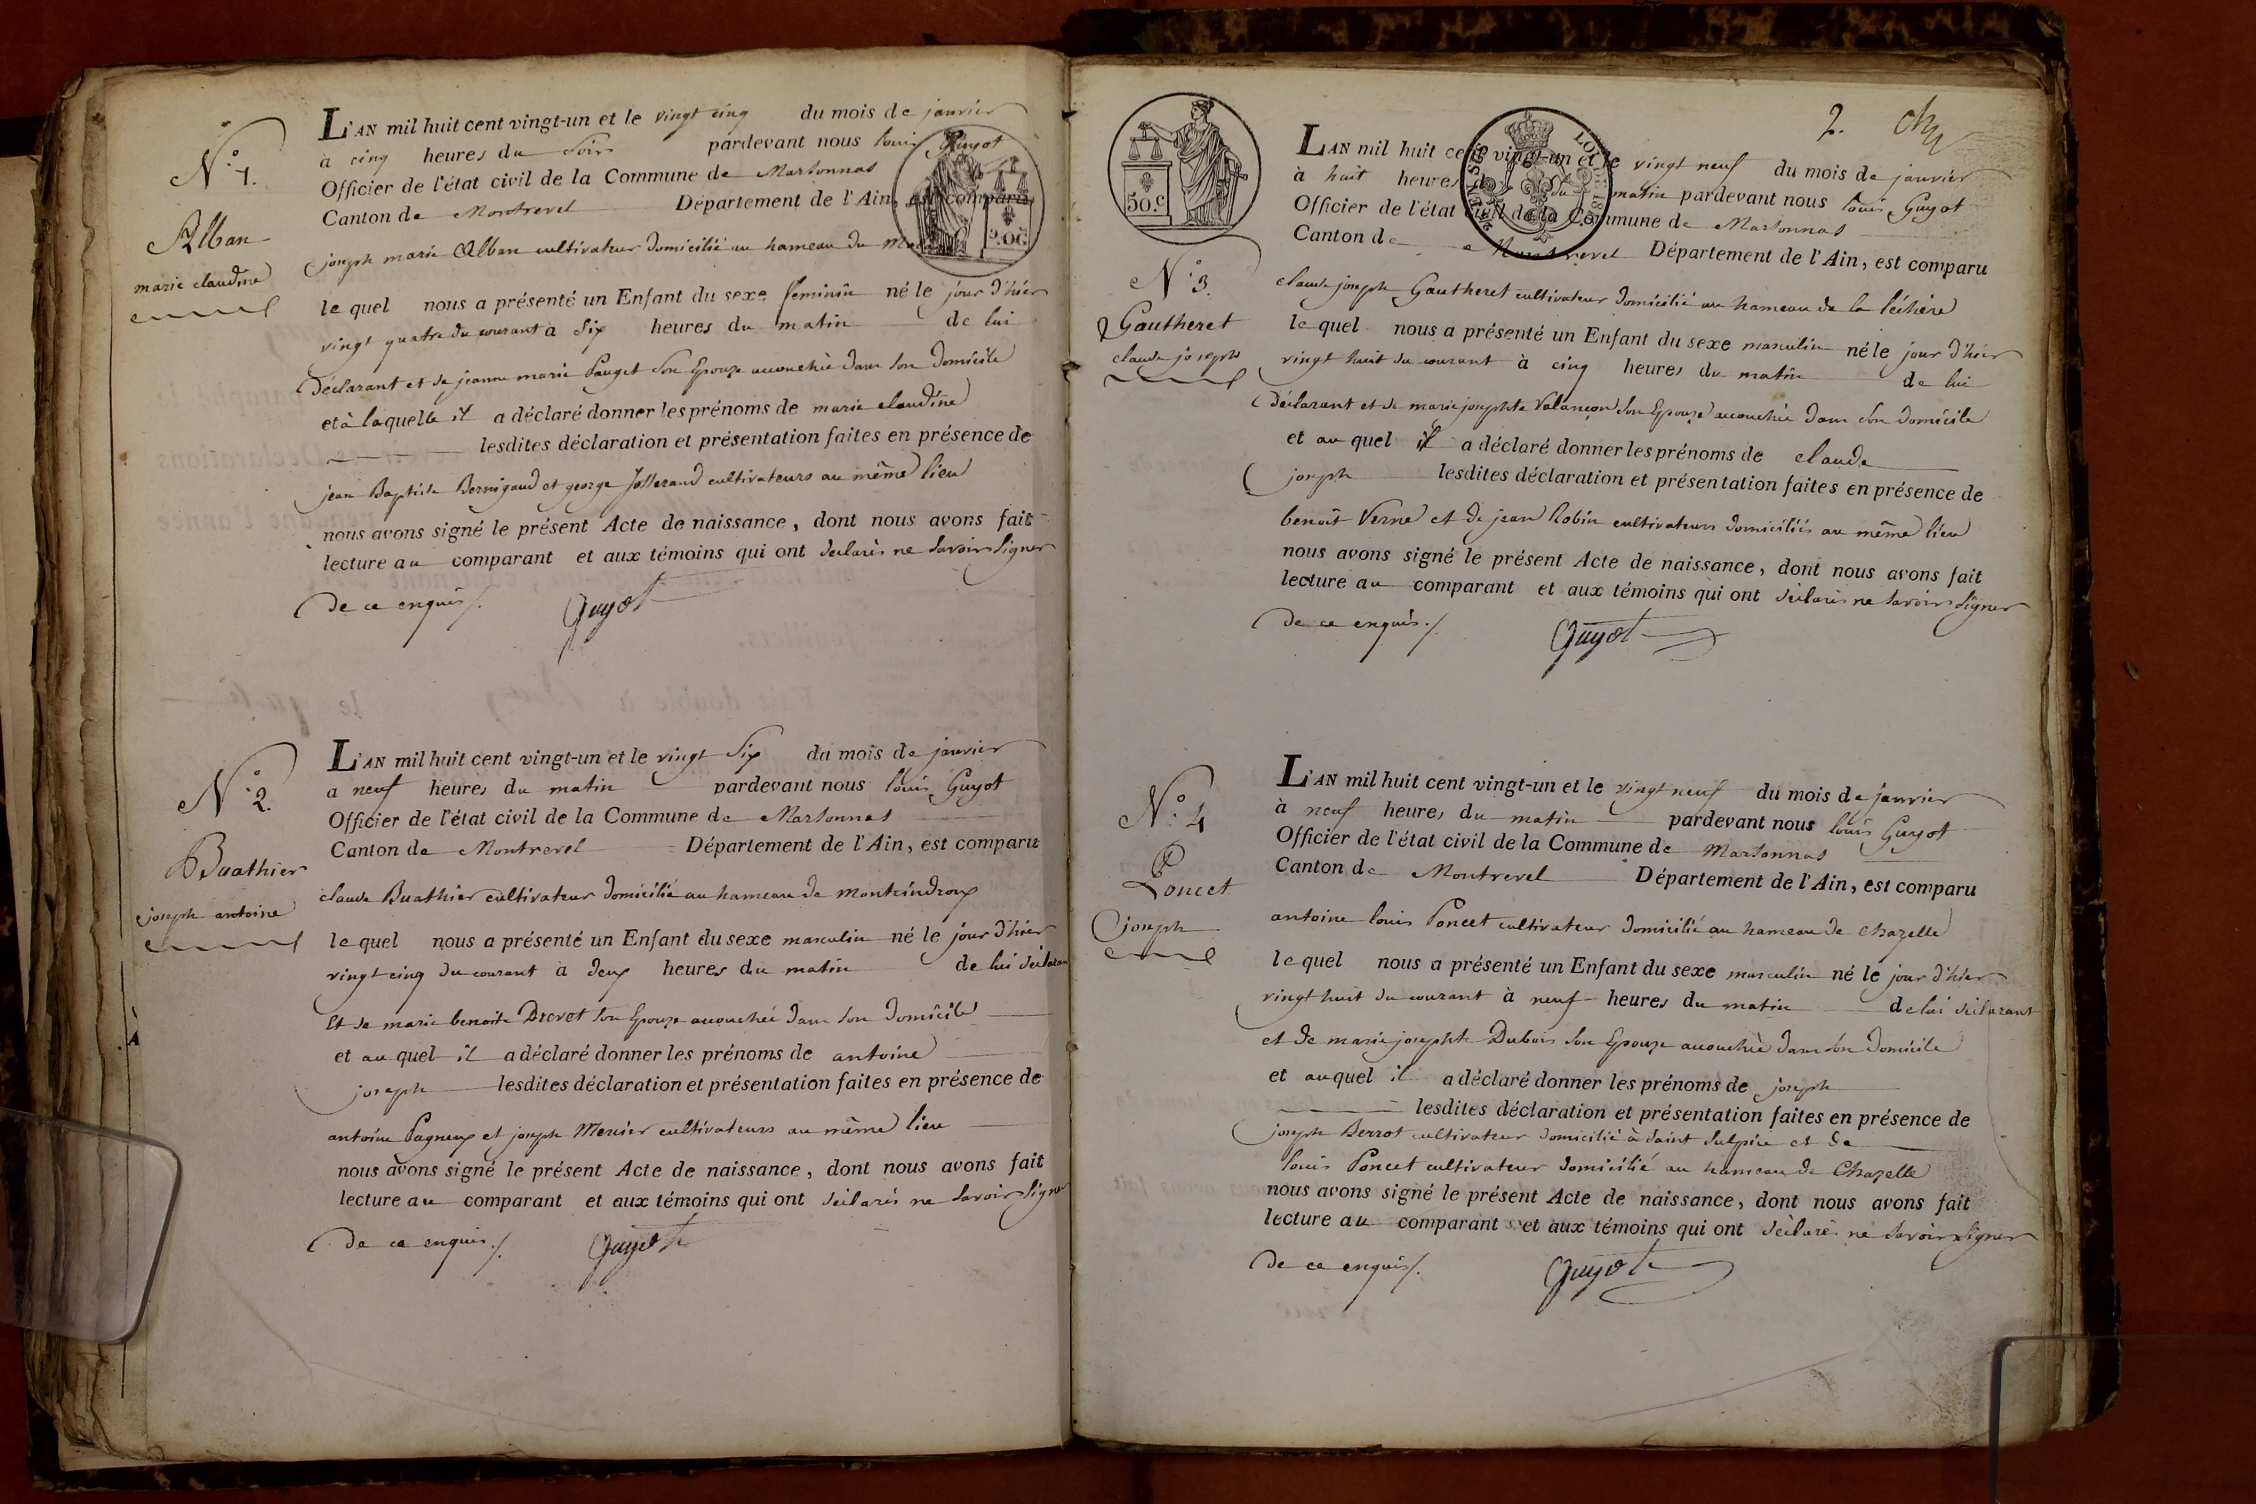 N.° 1.
Alban
marie claudine
L'AN mil huit cent vingt-un et le vingt cinq du mois de janvier
à cinq heures du soir pardevant nous louis Guyot
Officier de l'état civil de la Commune de Marsonnas
Canton de Montrevel Département de l'Ain, est comparu
joseph marie Alban cultivateur domicilié au hameau du
le quel nous a présenté un Enfant du sexe feminin né le jour d'hier
vingt quatre du courant à six heures du matin de lui
déclarant et de jeanne marie Pauget son Epouze accouchée dans son domicile
et à laquelle il a déclaré donner les prénoms de marie claudine
lesdites déclaration et présentation faites en présence de
jean Baptiste Bernigaud et george Josserand cultivateurs au même lieu
nous avons signé le présent Acte de naissance, dont nous avons fait
lecture au comparant et aux témoins qui ont déclarés ne savoir signer
de ce enquis ./.
Guyot
N.° 2.
Buathier
joseph antoine
L'AN mil huit cent vingt-un et le vingt six du mois de janvier
a neuf heures du matin pardevant nous louis Guyot
Officier de l'état civil de la Commune de Marsonnas
Canton de Montrevel Département de l'Ain, est comparu
claude Buathier cultivateur domicilié au hameau de montcindroux
le quel nous a présenté un Enfant du sexe masculin né le jour d'hier
vingt cinq du courant à deux heures du matin de lui déclarant
et de marie benoite Decrot son Epouze accouchée dans son domicile
et au quel il a déclaré donner les prénoms de antoine
joseph lesdites déclaration et présentation faites en présence de
antoine Pagneux et joseph Mercier cultivateurs au même lieu
nous avons signé le présent Acte de naissance, dont nous avons fait
lecture au comparant et aux témoins qui ont déclarés ne savoir signer
de ce enquis ./.
Guyot
À
2.
50.C
N.° 3.
Gautheret
claude joseph
L'AN mil huit cent vingt-un et le vingt neuf du mois de janvier
à huit heures du matin pardevant nous louis Guyot
Officier de l'état civil de la Commune de Marsonnas
Canton de Montrevel Département de l'Ain, est comparu
claude joseph Gautheret cultivateur domicilié au hameau de la léchère
le quel nous a présenté un Enfant du sexe masculin né le jour d'hier
vingt huit du courant à cinq heures du matin de lui
déclarant et de marie josephte Valançon son Epouze accouchée dans son domicile
et au quel il a déclaré donner les prénoms de claude
joseph lesdites déclaration et présentation faites en présence de
benoit Verne et de jean Robin cultivateurs domiciliés au même lieu
nous avons signé le présent Acte de naissance, dont nous avons fait
lecture au comparant et aux témoins qui ont déclarés ne savoir signer
de ce enquis ./.
Guyot
N.° 4
Poncet
joseph
L'AN mil huit cent vingt-un et le vingt neuf du mois de janvier
à neuf heures du matin pardevant nous louis Guyot
Officier de l'état civil de la Commune de Marsonnas
Canton de Montrevel Département de l'Ain, est comparu
antoine louis Poncet cultivateur domicilié au hameau de chazelle
le quel nous a présenté un Enfant du sexe masculin né le jour d'hier
vingt huit du courant à neuf heures du matin de lui déclarant
et de marie josephte Dubois son Epouze accouchée dans son domicile
et au quel il a déclaré donner les prénoms de joseph
lesdites déclaration et présentation faites en présence de
joseph Berrot cultivateur domicilié à saint sulpice et de
louis Poncet cultivateur domicilié au hameau de Chazelle
nous avons signé le présent Acte de naissance, dont nous avons fait
lecture au comparant et aux témoins qui ont déclarés ne savoir signer
de ce enquis ./.
Guyot